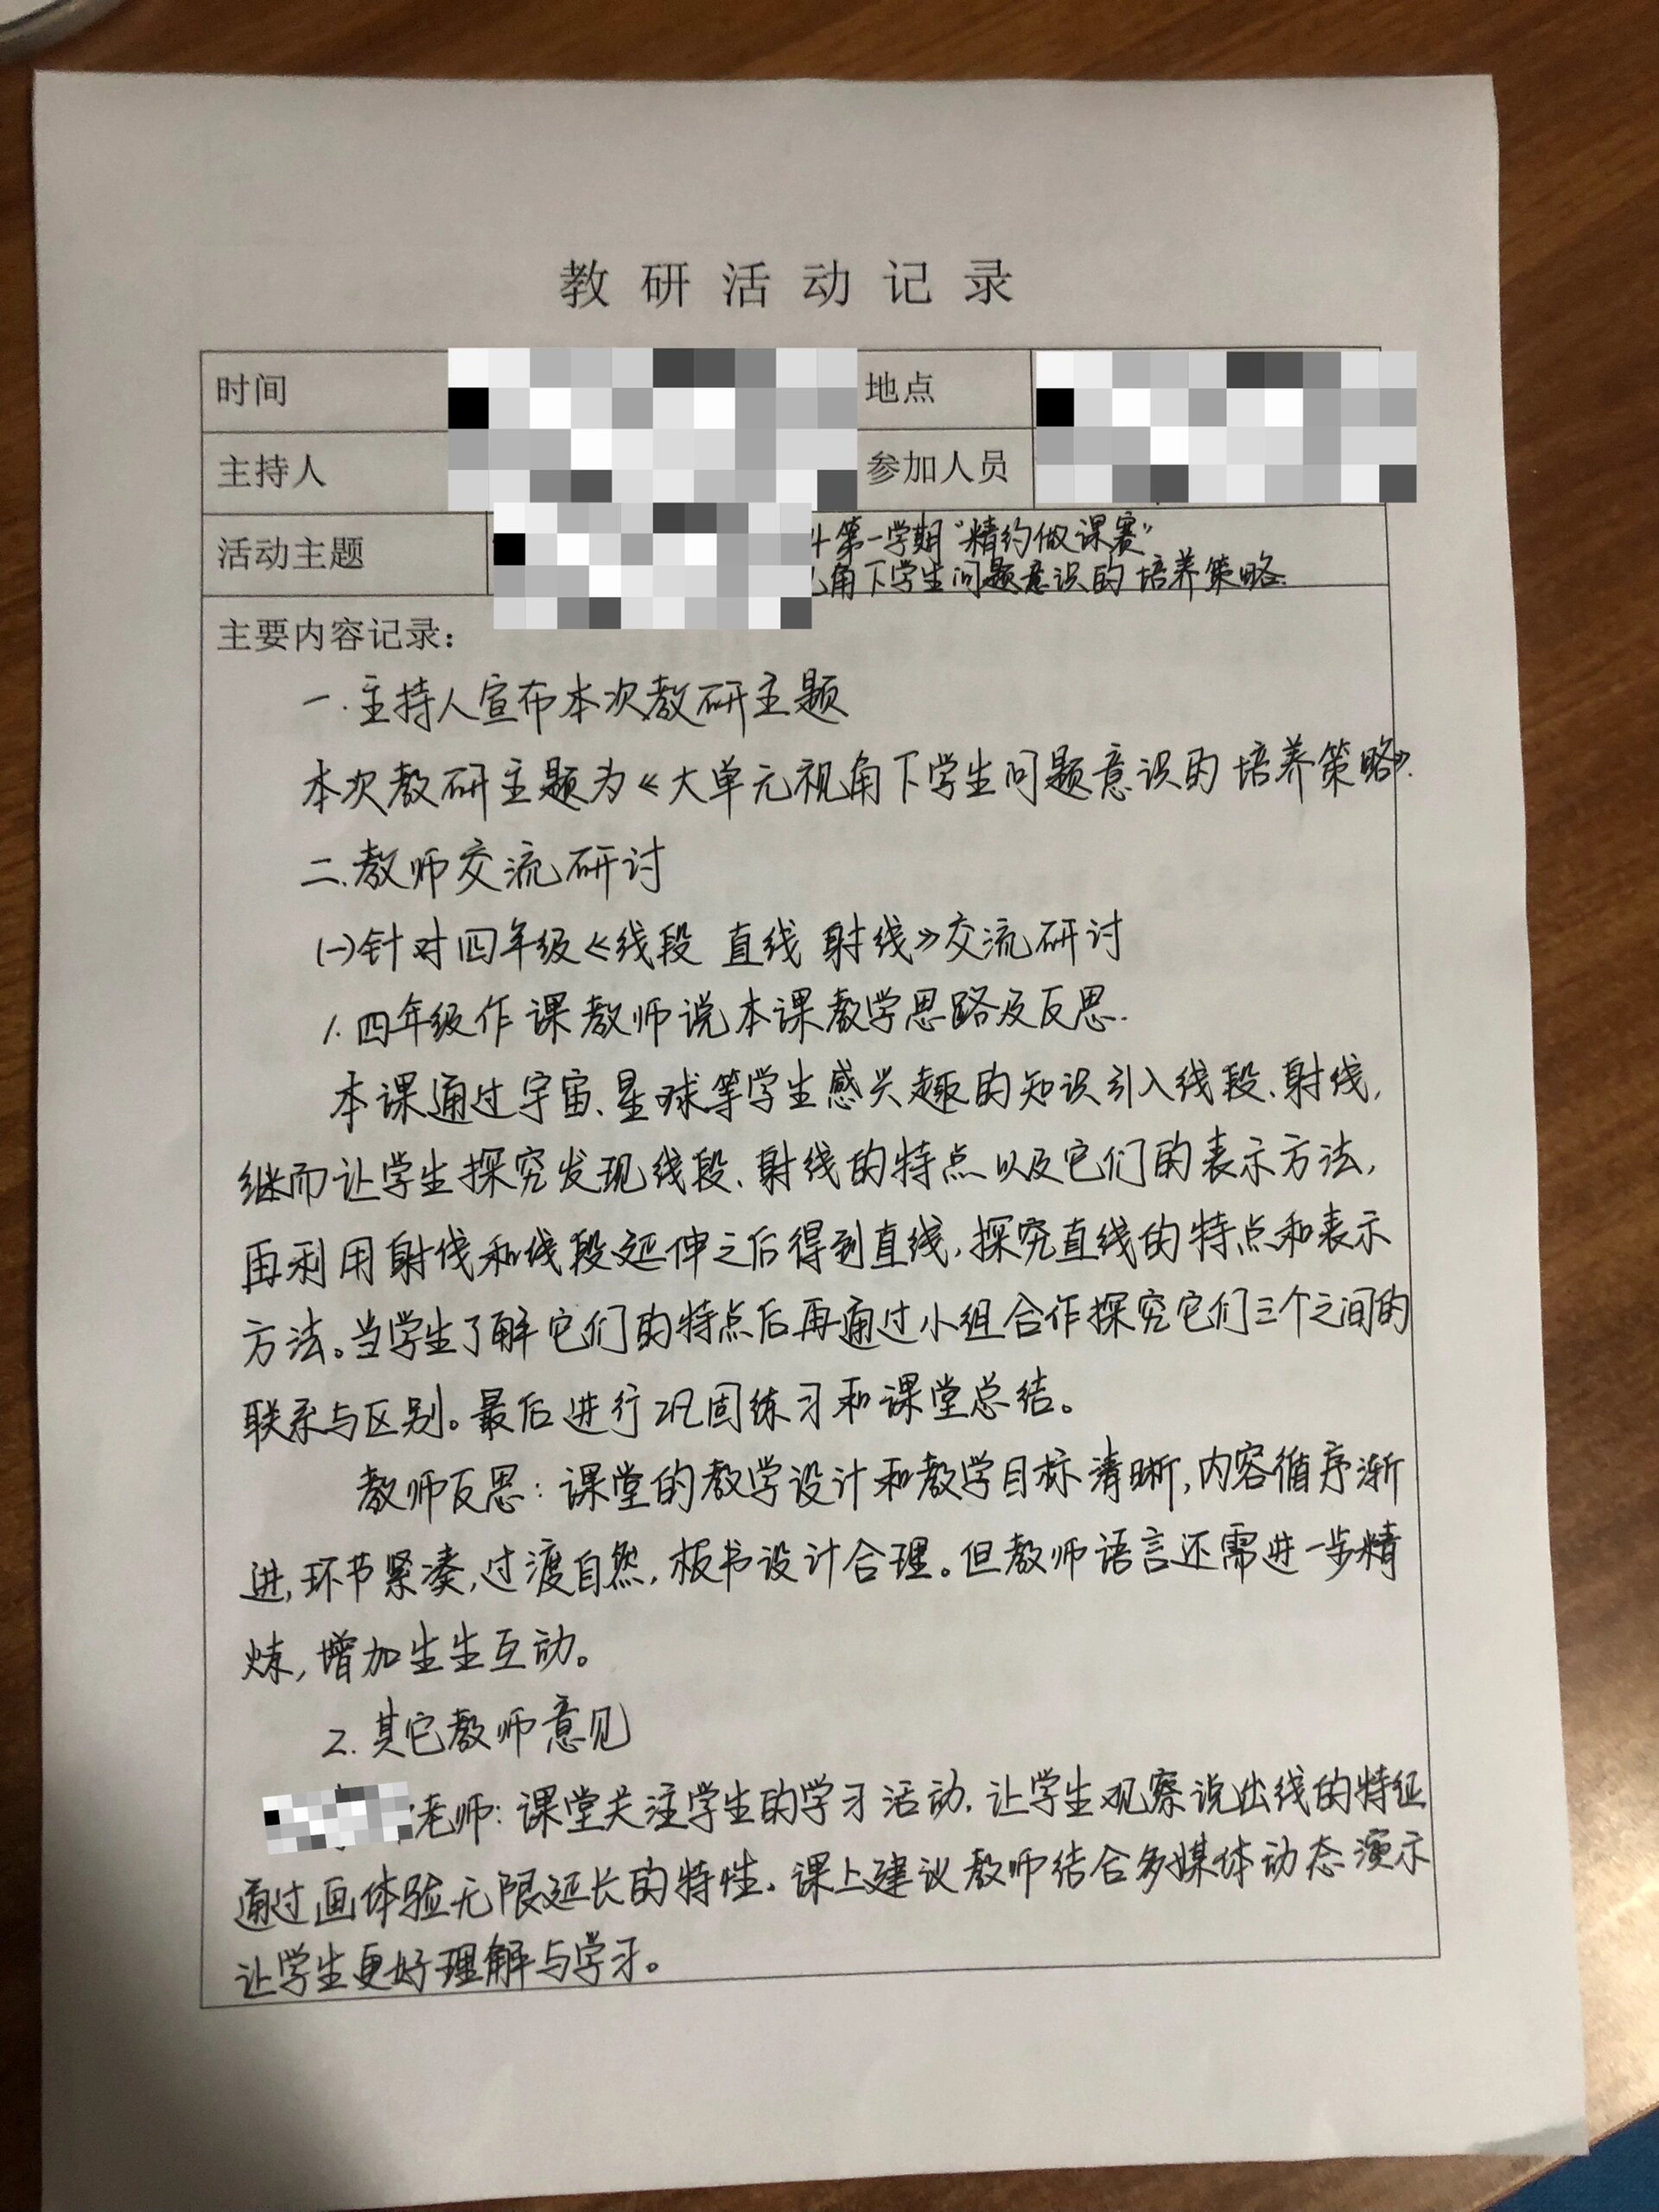 教研活动记录
时间 地点
主持人 参加人员
活动主题 第一学期“精约做课赛”
角下学生问题意识的培养策略
主要内容记录：
一.主持人宣布本次教研主题
本次教研主题为《大单元视角下学生问题意识的培养策略》.
二.教师交流研讨
(一)针对四年级《线段 直线 射线》交流研讨
1.四年级作课教师说本课教学思路及反思.
本课通过宇宙、星球等学生感兴趣的知识引入线段、射线,
继而让学生探究发现线段、射线的特点以及它们的表示方法,
再利用射线和线段延伸之后得到直线,探究直线的特点和表示
方法。当学生了解它们的特点后再通过小组合作探究它们三个之间的
联系与区别。最后进行巩固练习和课堂总结。
教师反思:课堂的教学设计和教学目标清晰,内容循序渐
进,环节紧凑,过渡自然,板书设计合理。但教师语言还需进一步精
炼,增加生生互动。
2.其它教师意见
老师:课堂关注学生的学习活动,让学生观察说出线的特征
通过画体验无限延长的特性。课上建议教师结合多媒体动态演示
让学生更好理解与学习。